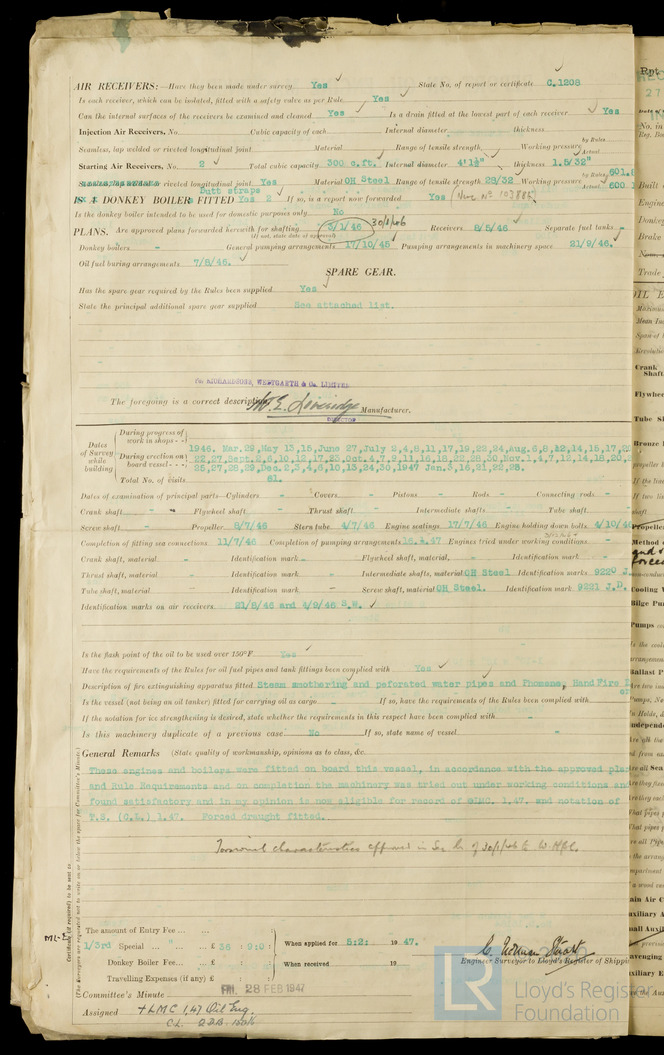 AIR RECEIVERS:—Have they been made under survey Yes State No. of report or certificate C.1208
Is each receiver, which can be isolated, fitted with a safety valve as per Rule Yes
Can the internal surfaces of the receivers be examined and cleaned Yes Is a drain fitted at the lowest part of each receiver Yes
Injection Air Receivers, No. Cubic capacity of each Internal diameter thickness
Seamless, lap welded or riveted longitudinal joint Material Range of tensile strength Working pressure by Rules Actual
Starting Air Receivers, No. 2 Total cubic capacity 300 c.ft. Internal diameter 4'1½" thickness 1.5/32"
riveted longitudinal joint Yes Material OH Steel Range of tensile strength 28/32 Working pressure by Rules 601. Actual 600
Butt straps
IS A DONKEY BOILER FITTED Yes 2 If so, is a report now forwarded Yes
Is the donkey boiler intended to be used for domestic purposes only No
PLANS. Are approved plans forwarded herewith for shafting 3/1/46 30/8/46 Receivers 8/5/46 Separate fuel tanks -
(If not, state date of approval)
Donkey boilers - General pumping arrangements 17/10/45 Pumping arrangements in machinery space 21/9/46.
Oil fuel buring arrangements 7/8/46.
SPARE GEAR.
Has the spare gear required by the Rules been supplied Yes
State the principal additional spare gear supplied See attached list.
RICHARDSONS, WESTGARTH & Co. LIMITED
The foregoing is a correct description, Manufacturer.
DIRECTOR
Dates of Survey while building
During progress of work in shops - -
During erection on board vessel - - -
1946. Mar.29, May 13,15, June 27, July 2,4,8,11,17,19,22,24, Aug.6,8,12,14,15,17,2
22,27, Sept.2,6,10,12,17,23, Oct.4,7,9,11,16,18,22,28,30, Nov.1,4,7,12,14,18,20,2
25,27,28,29, Dec.2,3,4,6,10,13,24,30, 1947 Jan.3,16,21,22,23.
Total No. of visits 61.
Dates of examination of principal parts—Cylinders - Covers - Pistons - Rods - Connecting rods -
Crank shaft - Flywheel shaft - Thrust shaft - Intermediate shafts - Tube shaft -
Screw shaft - Propeller 8/7/46 Stern tube 4/7/46 Engine seatings 17/7/46 Engine holding down bolts 4/10/46
Completion of fitting sea connections 11/7/46 Completion of pumping arrangements 16.4.47 Engines tried under working conditions -
Crank shaft, material - Identification mark - Flywheel shaft, material, - Identification mark -
Thrust shaft, material - Identification mark - Intermediate shafts, material OH Steel Identification marks 9220 J.
Tube shaft, material - Identification mark - Screw shaft, material OH Steel. Identification mark 9221 J.D.
Identification marks on air receivers 21/8/46 and 4/9/46 S.W.
Is the flash point of the oil to be used over 150°F Yes
Have the requirements of the Rules for oil fuel pipes and tank fittings been complied with Yes
Description of fire extinguishing apparatus fitted Steam smothering and peforated water pipes and Phomene, Hand Fire
Is the vessel (not being an oil tanker) fitted for carrying oil as cargo - If so, have the requirements of the Rules been complied with
If the notation for ice strengthening is desired, state whether the requirements in this respect have been complied with -
Is this machinery duplicate of a previous case No If so, state name of vessel -
General Remarks (State quality of workmanship, opinions as to class, &c.
These engines and boilers were fitted on board this vessel, in accordance with the approved plans
and Rule Requirements and on completion the machinery was tried out under working conditions and
found satisfactory and in my opinion is now eligible for record of LMC. 1.47, and notation of
T.S. (C.L.) 1.47. Forced draught fitted.
Torsional characteristics approved in Sec. lr. of 30/1/46 to
The amount of Entry Fee ...
1/3rd Special ... " ... £ 36 : 9:0 : When applied for 5:2: 19 47.
Donkey Boiler Fee... ... £ : : When received 19
Travelling Expenses (if any) £
Engineer Surveyor to Lloyd's Register of Shippi
Committee's Minute FRI. 28 FEB 1947
Assigned + LMC 1,47 Oil Eng.
C.L.
LR
Lloyd's Register
Foundation